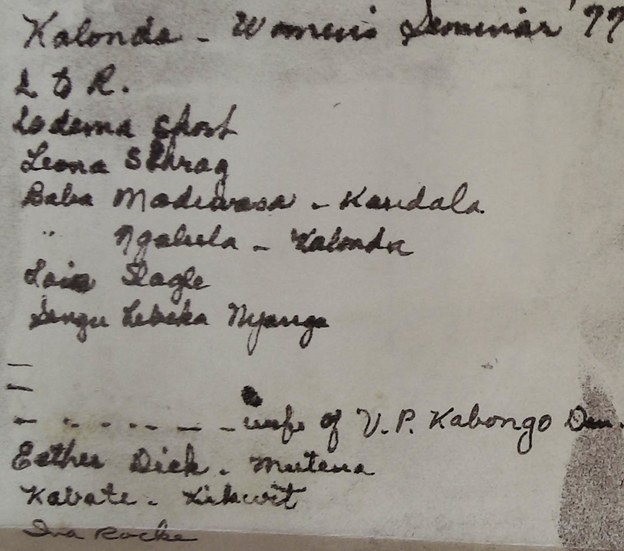 Kalonda - Women's Seminar '77
L to R.
Lodema Short
Leona Schrag
Baba Madiwasa - Kandala
" Ngalula - Kalonda
Lois Slagle
Lebeka Nyanga
—
—
- - - - - - - wife of V.P. Kabongo
Esther Dick - Mutena
Kabate - Kikwit
Ina Rocke